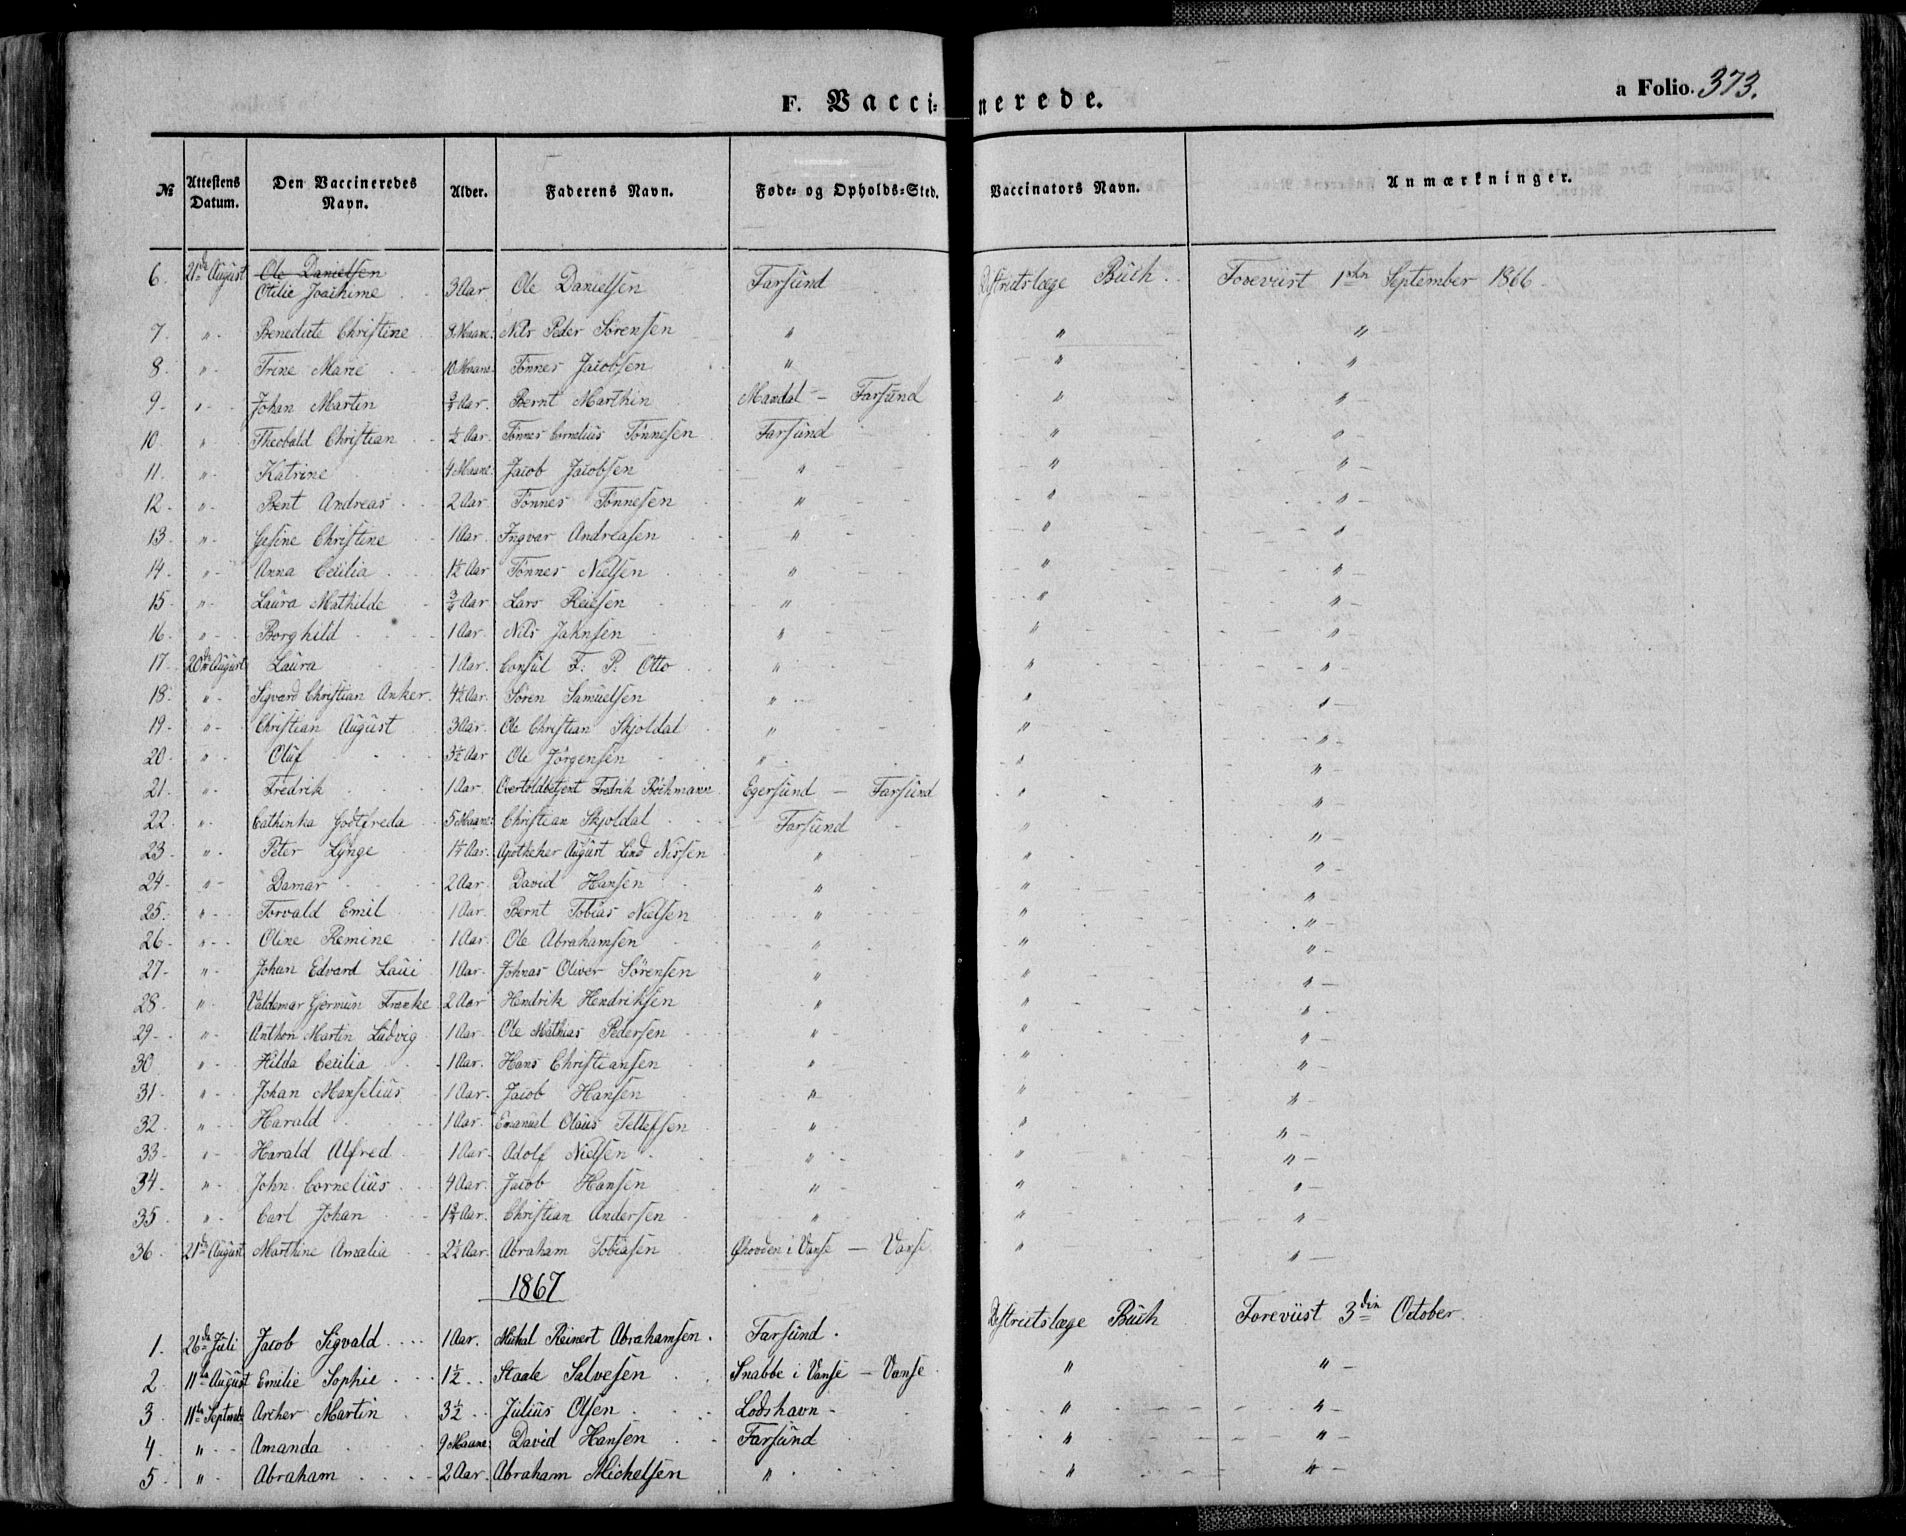 F. Vaccinerede.
a Folio. 373.
№ | Attestens Datum. | Den Vaccineredes Navn. | Alder. | Faderens Navn. | Føde- og Opholds-Sted. | Vaccinators Navn. | Anmærkninger.
6 21de August Ole Danielsen
Otilie Joachime 3 Aar Ole Danielsen Farsund Distriktslæge Buch Foreviist 1ste September 1866.
7 " Benedicte Christine 8 Maane: Nils Peder Sørensen " " "
8 " Trine Marie 10 Maane: Tønnes Jacobsen " " "
9 " Johan Martin 3/4 Aar. Bernt Marthin Mandal - Farsund " "
10 " Theobald Christian 1/2 Aar. Tønnes Cornelius Tønnesen Farsund " "
11 " Katrine 4 Maane: Jacob Jacobsen " " "
12 " Bent Andreas 2 Aar Tønnes Tønnesen " " "
13 " Gesine Christine 1 Aar. Ingvar Andreasen " " "
14 " Anna Cecilia 1½ Aar Tønnes Nielsen " " "
15 " Laura Mathilde 3/4 Aar Lars Reiesen " " "
16 " Borghild 1 Aar. Nils Jahnsen " " "
17 20de August Laura 1 Aar. Consul F. P. Otto " " "
18 " Sigvard Christian Anker. 4½ Aar. Søren Samuelsen " " "
19 " Christian August 3 Aar. Ole Christian Skjoldal " " "
20 " Oluf 3½ Aar Ole Jørgensen " " "
21 " Fredrik 1 Aar. Overtoldbetjent Fredrik Egersund - Farsund " "
22 " Cathinka Godtfreda 5 Maane: Christian Skjoldal Farsund " "
23 " Peter Lynge Aar. Apotheker August Lind Nissen " " "
24 " Damar 2 Aar. David Hansen " " "
25 " Torvald Emil 1 Aar. Bernt Tobias Nielsen " " "
26 " Oline Remine 1 Aar. Ole Abrahamsen " " "
27 " Johan Edvard Laui 1 Aar. Johnas Oliver Sørensen " " "
28 " Valdemar Franke 2 Aar Hendrik Hendriksen " " "
29 " Anthon Martin Ludvig 1 Aar. Ole Mathias Pedersen " " "
30 " Hilda Cecilia 1 Aar. Hans Christiansen " " "
31 " Johan Manselius 1 Aar. Jacob Hansen " " "
32 " Harald 1 Aar. Emanuel Olaus Tellefsen " " "
33 " Harald Alfred 1 Aar. Adolf Nielsen " " "
34 " John Cornelius 4 Aar. Jacob Hansen " " "
35 " Carl Johan 1¾ Aar. Christian Andersen " " "
36 21de August Marthine Amalia 2½ Aar. Abraham Tobiasen i Vanse - Vanse " "
1867
1. 26de Juli Jacob Sigvald 1 Aar. Michal Reinert Abrahamsen. Farsund. Distriktslæge Buch Foreviist 3die October.
2 11te August Emilie Sophie 1½ Staale Salvesen Snabbe i Vanse - Vanse " "
3 11te Septmbr Archer Martin 3½ Julius Olsen Lodshavn " "
4 " Amanda 9 Maane: David Hansen Farsund " "
5 " Abraham 2 Aar. Abraham Michelsen " " "